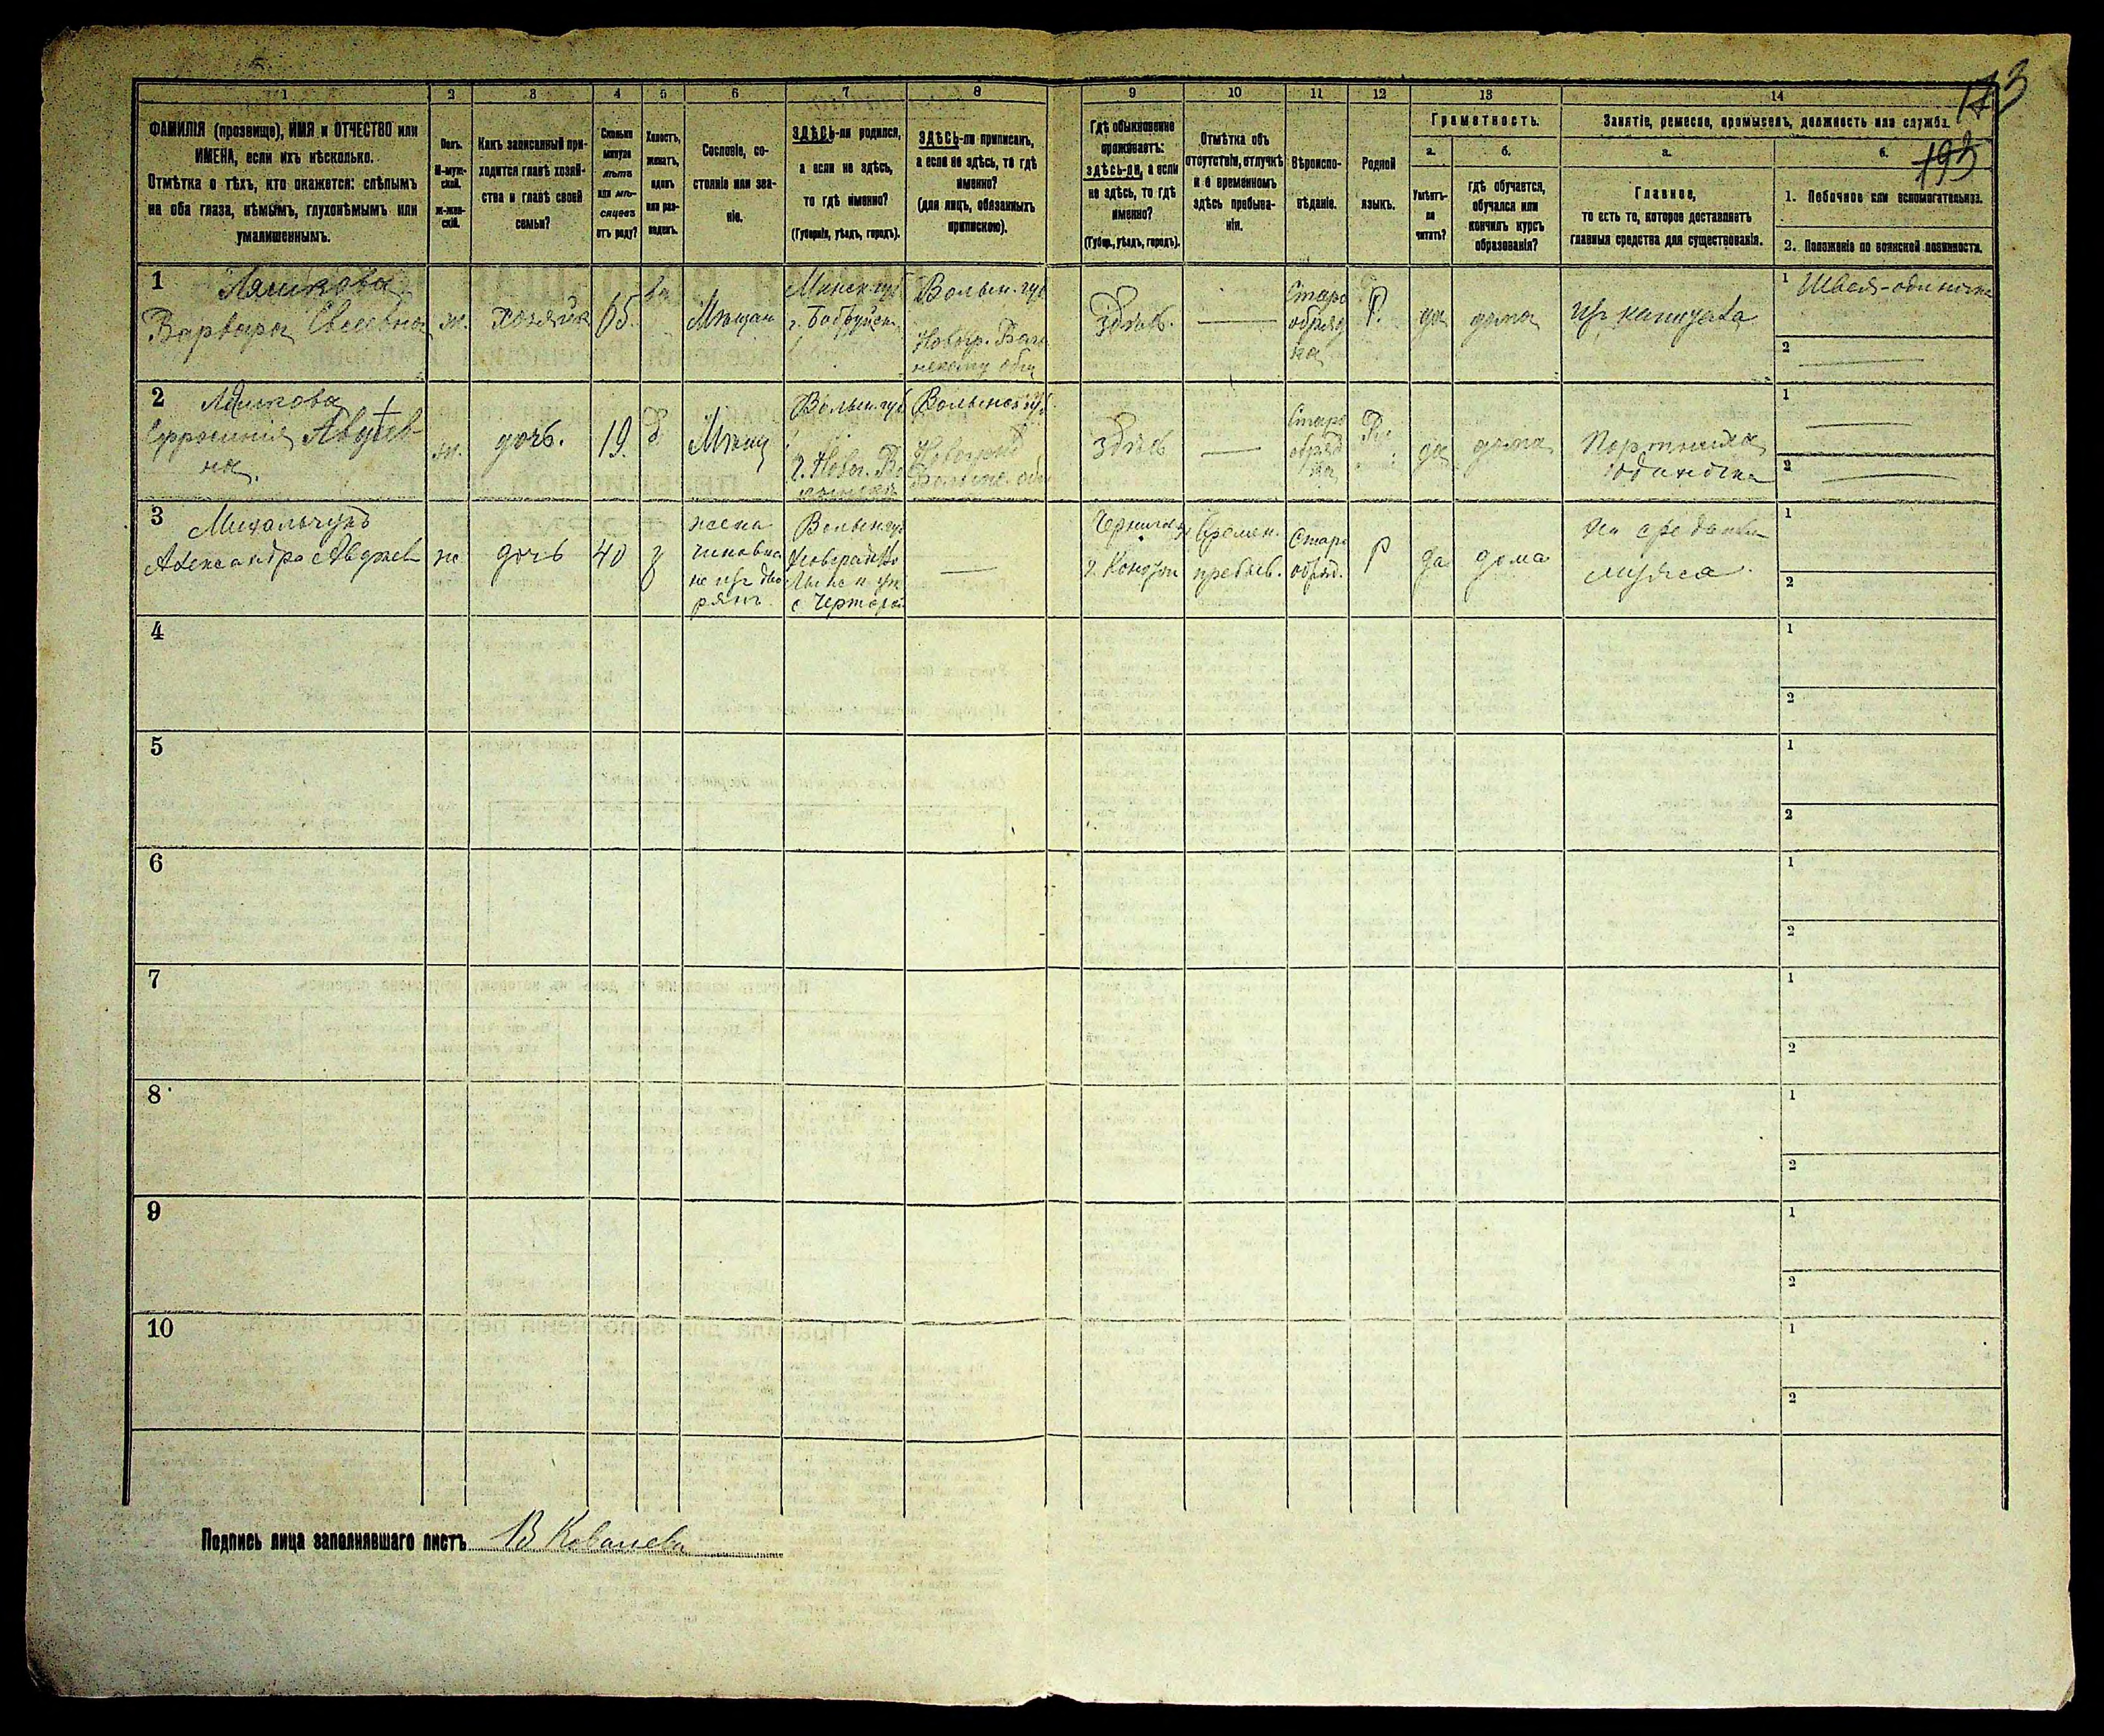 173
193
1 2 3 4 5 6 7 8 9 10 11 12 13 14
ФАМИЛІЯ (прозвище), ИМЯ и ОТЧЕСТВО или
ИМЕНА, если ихъ нѣсколько.
Отмѣтка о тѣхъ, кто окажется: слѣпымъ
на оба глаза, нѣмымъ, глухонѣмымъ или
умалишеннымъ.
Полъ.
М-муж-
ской.
ж-жен-
скій.
Какъ записанный при-
ходится главѣ хозяй-
ства и главѣ своей
семьи?
Сколько
минуло
лѣтъ
или мѣ-
сяцевъ
отъ роду?
Холостъ,
женатъ,
вдовъ
или раз-
веденъ.
Сословіе, со-
стояніе или зва-
ніе.
ЗДѢСЬ-ли родился,
а если не здѣсь,
то гдѣ именно?
(Губернія, уѣздъ, городъ).
ЗДѢСЬ-ли приписанъ,
а если не здѣсь, то гдѣ
именно?
(для лицъ, обязанныхъ
припискою).
Гдѣ обыкновенно
проживаетъ:
здѣсь-ли, а если
не здѣсь, то гдѣ
именно?
(Губер., уѣздъ, городъ).
Отмѣтка объ
отсутствіи, отлучкѣ
и о временномъ
здѣсь пребыва-
ніи.
Вѣроиспо-
вѣданіе.
Родной
языкъ.
Грамотность.
а.
Умѣетъ-
ли
читать?
б.
гдѣ обучается,
обучался или
кончилъ курсъ
образованія?
Занятіе, ремесло, промыселъ, должность или служба.
а.
Главное,
то есть то, которое доставляетъ
главныя средства для существованія.
б.
1. Побочное или вспомогательное.
2. Положеніе по воинской повинности.
1
Варвара
ж.
хозяйка
65
вд
Мѣщан
Минск. губ
г. Бобруйск
Волын. губ
здѣсь.
—
Старо
обряд
ка
Р.
да
дома
1 Швея-одиночка
2 —
2
Ефросинія Авдѣев
на.
ж.
дочь.
19.
Мѣщ
Волын. губ
Волынск губ
здѣсь
—
Старо
обряд
ка
да
дома
Портниха
одиночка
1 —
2 —
3 Михальчукъ
Александра Авдѣев
ж
дочь
40
з
жена
чиновни
Волын губ
—
г. Конотоп
Времен.
пребыв.
Старо
обряд.
Р
да
дома
На средства
мужа.
1
2
4
1
2
5
1
2
6
1
2
7
1
2
8
1
2
9
1
2
10
1
2
Подпись лица заполнявшаго листъ В Ковалева